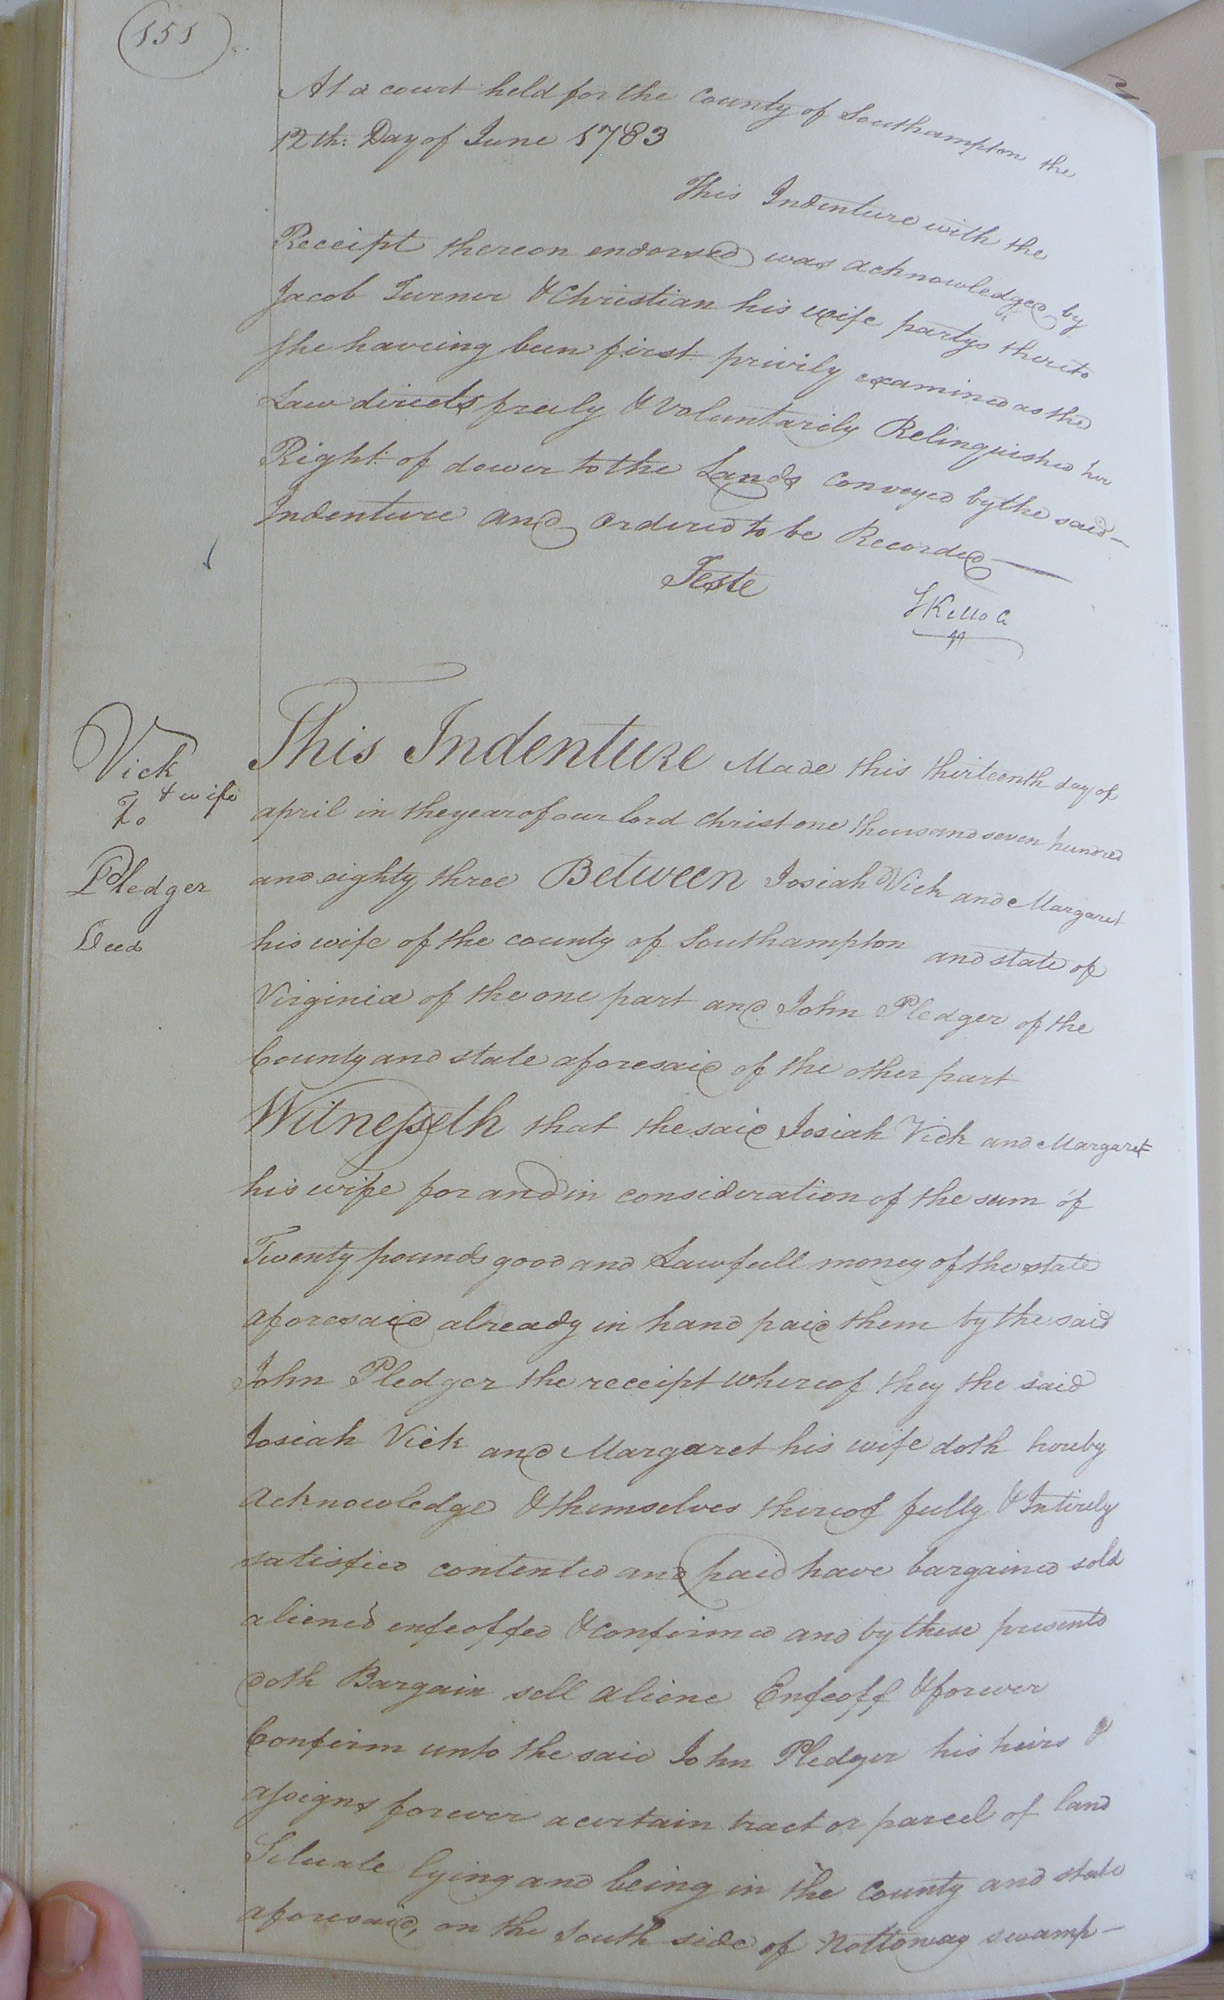 151
At a court held for the County of Southampton the
12th: Day of June 1783
This Indenture with the
Receipt thereon endorsed was acknowledged by
Jacob Turner & Christian his wife partys thereto
she haveing been first privily examined as the
Law directs freely & Voluntarily Relinquished her
Right of dower to the Lands conveyed by the said—
Indenture and ordered to be Recorded—
Teste
SKello C
Vick
& wife
To
Pledger
Deed
This Indenture Made this thirteenth day of
april in the year of our lord christ one thousand seven hundred
and eighty three Between Josiah Vick and Margaret
his wife of the county of Southampton and state of
Virginia of the one part and John Pledger of the
County and state aforesaid of the other part
Witnesseth that the said Josiah Vick and Margaret
his wife for and in consideration of the sum of
Twenty pounds good and Lawfull money of the state
aforesaid already in hand paid them by the said
John Pledger the receipt whereof they the said
Josiah Vick and Margaret his wife doth hereby
acknowledge & themselves thereof fully & Intirely
satisfied contented and paid have bargained sold
aliened enfeoffed & confirmed and by these presents
doth Bargain sell aliene Enfeoff & forever
Confirm unto the said John Pledger his heirs &
assigns forever a certain tract or parcel of land
Situate lying and being in the county and state
aforesaid, on the South side of Nottoway swamp—